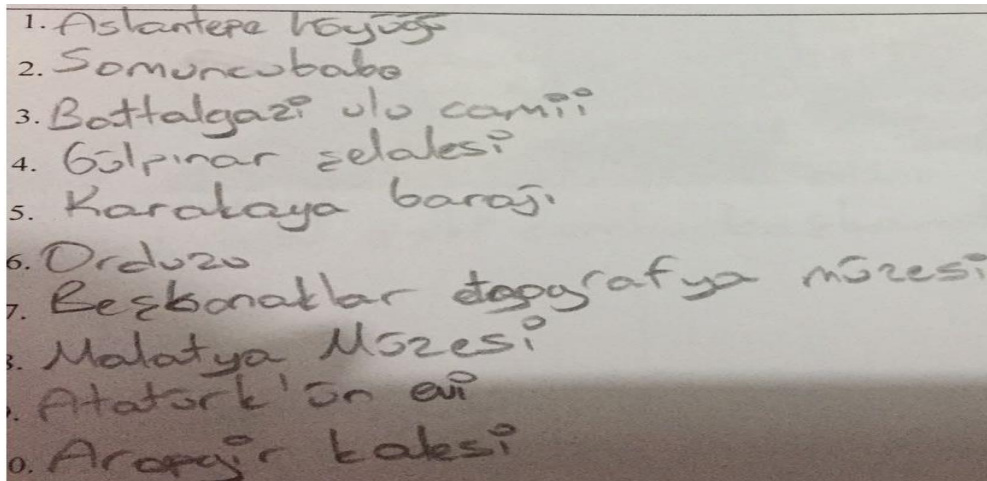 1. Aslantepe höyüğü
2. Somuncubaba
3. Battalgazi ulu camii
4. Gülpınar şelalesi
5. Karakaya barajı
6. Orduzu
7. Beşkonaklar etografya müzesi
8. Malatya Müzesi
9. Atatürk'ün evi
10. Arapgir kalesi